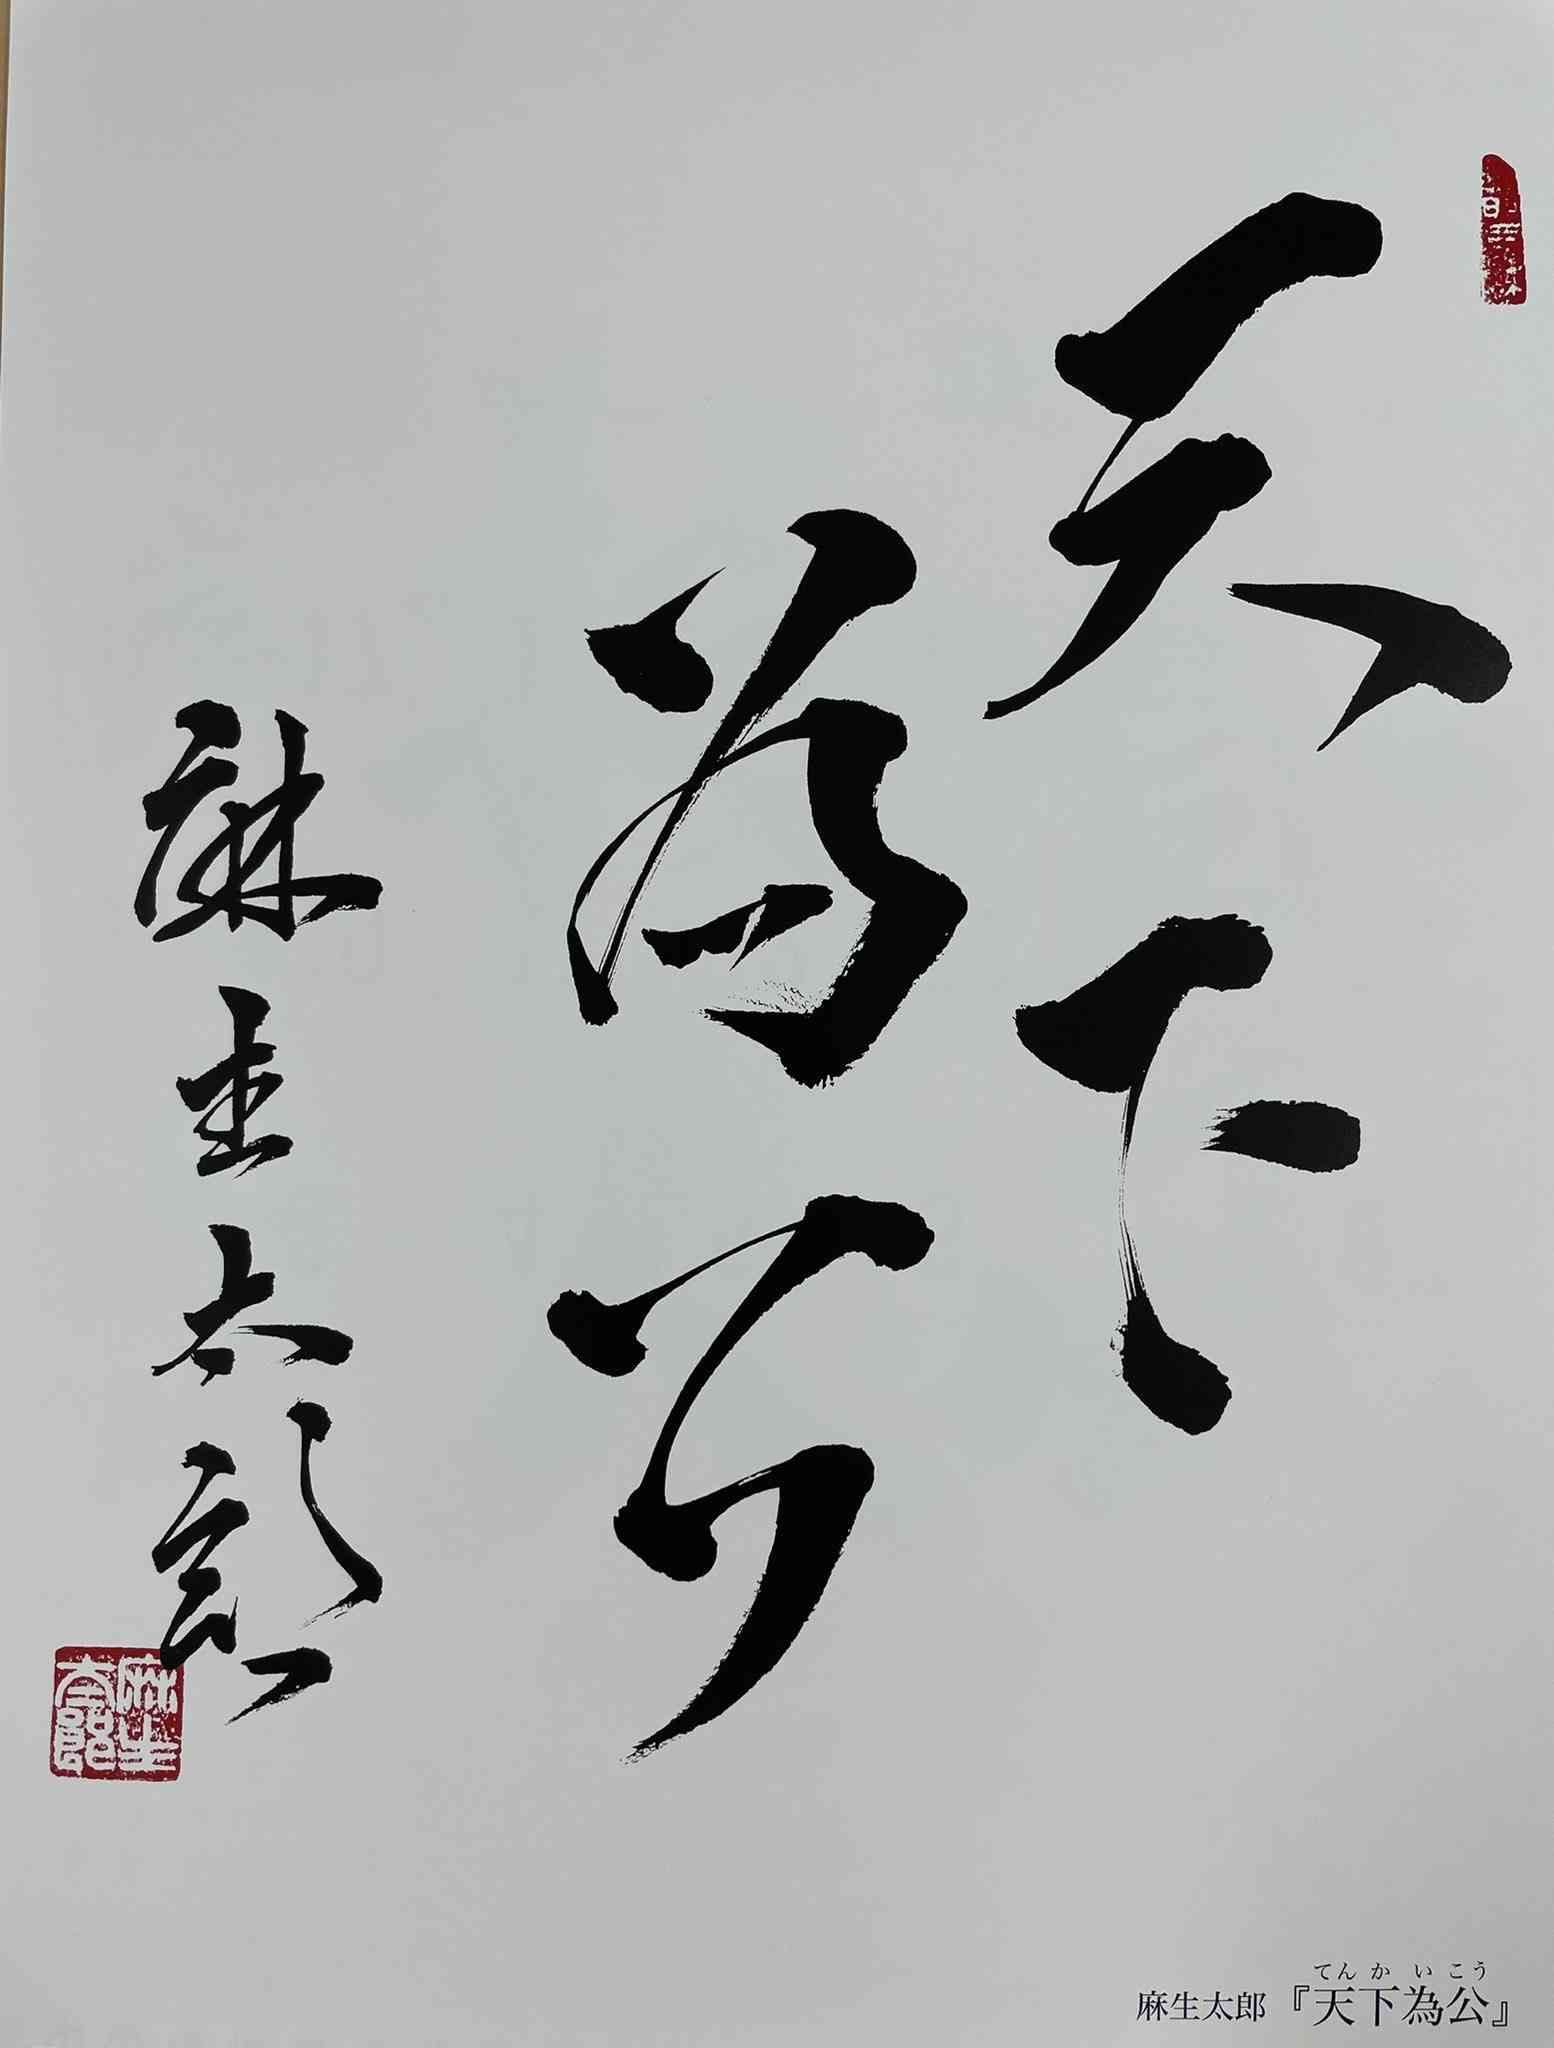 天下
為公
麻生太郎
麻生
太郎
てんかいこう
麻生太郎『天下為公』